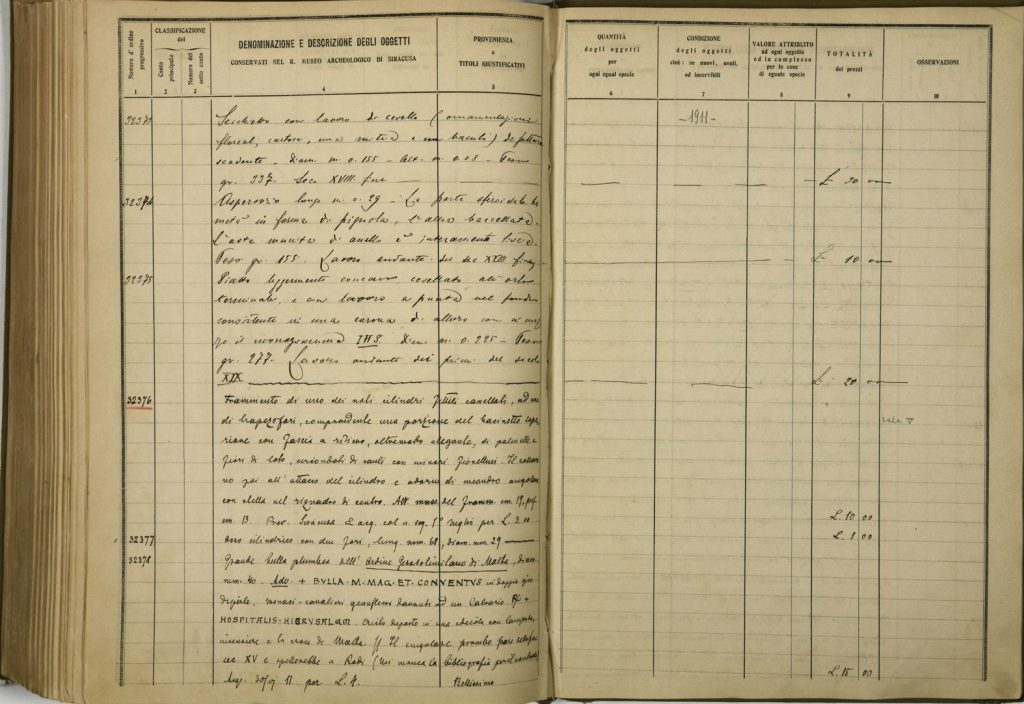 Numero d'ordine progressivo
CLASSIFICAZIONE
del
Conto principale
Numero del sotto conto
DENOMINAZIONE E DESCRIZIONE DEGLI OGGETTI
CONSERVATI NEL R. MUSEO ARCHEOLOGICO DI SIRACUSA
PROVENIENZA
e
TITOLI GIUSTIFICATIVI
QUANTITÀ
degli oggetti
per
ogni egual specie
CONDIZIONE
degli oggetti
cioè: se nuovi, usati,
od inservibili
VALORE ATTRIBUITO
ad ogni oggetto
ed in complesso
per le cose
di eguale specie
TOTALITÀ
dei prezzi
OSSERVAZIONI
1 2 3 4 5 6 7 8 9 10
- 1911 -
Secchietto con lavoro di cesello (ornamentazione
floreale, cartocci, una mitra e un baculo) di fattura
scadente - diam. m. 0.155 - Alt. m. 0.08 - Peso
gr. 337. Sec. XVIII fine £ 30 00
32374 Aspersorio lungo m. 0.29 - La parte sferoidale
metà in forma di pignola, l'altra baccellata.
L'asta munita di anello è interamente liscia.
Peso gr. 155. Lavoro andante del sec XVIII fine £ 10 00
32375 Piatto leggermente concavo, cesellato all'orlo
terminale, e con lavoro a punta nel fondo
consistente in una corona di alloro con in mez
zo il monogramma IHS. diam. m. 0.225 - Peso
gr. 277. Lavoro andante dei primi del secolo
XIX £ 20 00
32376 Frammento di uno dei noti cilindri fittili cancellati, ad uso
di trapezofori, comprendente una porzione del bacinetto
con fascia a rilievo, oltremodo elegante, di palmette e
fiori di loto, circondati di cauli con minori fiorellini. Il
no poi all'attacco del cilindro è adorno di meandro angolare
con stella nel riquadro di centro. Alt. mass. del framm. cm. 19,
cm. 13 Prov. Siracusa e acq. col n. seg. luglio per L. 9.00 L. 10 00
sala V
32377 Osso cilindrico con due fori, lung. mm. 68, diam. mm 29 L. 1 00
32378 Grande bulla plumbea dell'Ordine Gerosolimitano di Malta, diam.
mm. 40. Adv. + BVLLA·M·MAG·ET·CONVENTVS in doppio giro
di perle, monaci-cavalieri genuflessi davanti ad un Calvario R/ +
HOSPITALIS·HIERVSALEM· Cristo deposto in una edicola con lampada,
incensiere e la croce di Malta. // Il singolare piombo pare
sec. XV e spetterebbe a Rodi (Mi manca la bibliografia
Acq. 30/vj 11 per L. 4. Bellissimo L. 15 00